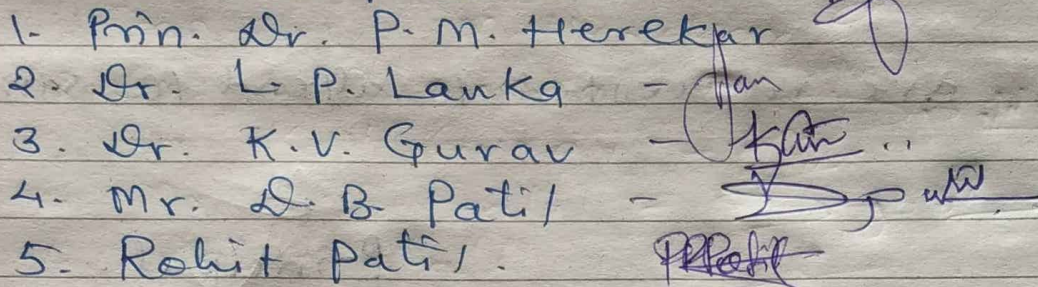 1. Prin. Dr. P. M. Herekar
2. Dr. L. P. Lanka -
3. Dr. K. V. Gurav -
4. Mr. D. B. Patil -
5. Rohit Patil.